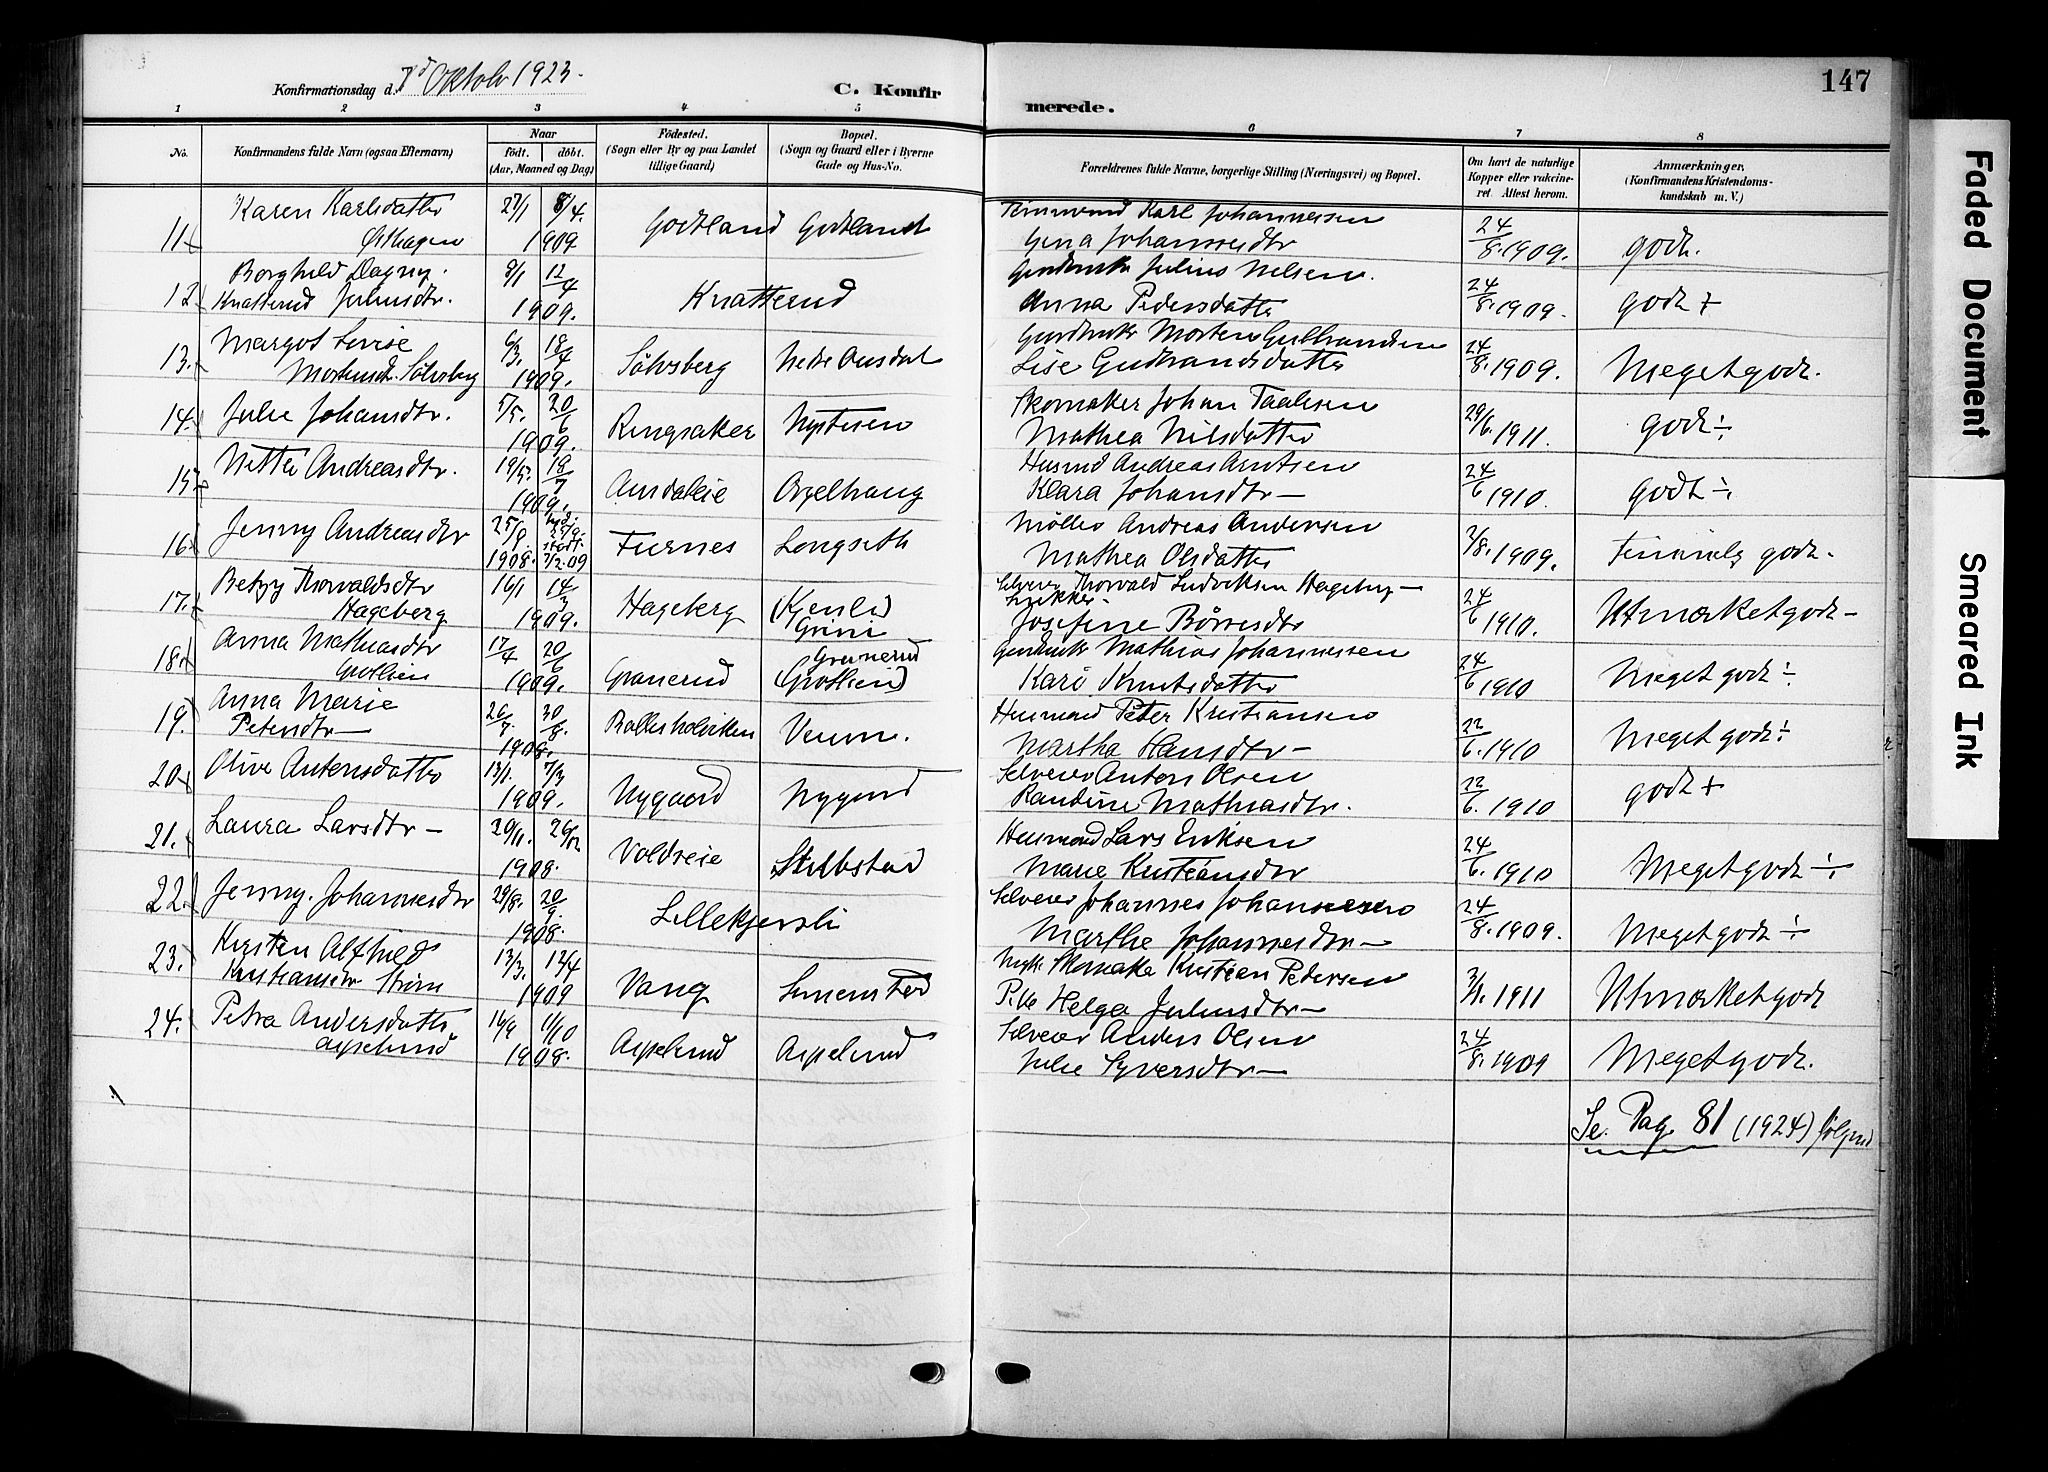 Konfirmationsdag d. 7d Oktobr 1923.
C. Konfirmerede.
147
1 2 3 4 5 6 7 8
No.
Konfirmandens fulde Navn (ogsaa Efternavn)
Naar
födt. döbt.
(Aar, Maaned og Dag)
Födested.
(Sogn eller By og paa Landet
tillige Gaard)
Bopæl.
(Sogn og Gaard eller i Byerne
Gade og Hus-No.
Forældrenes fulde Navne, borgerlige Stilling (Næringsvei) og Bopæl.
Om havt de naturlige
Kopper eller vakcine-
ret. Attest herom.
Anmærkninger,
(Konfirmandens Kristendoms-
kundskab m. V.)
11 Karen Karlsdatter 27/1 8/4. Godtland Godtland Karl Johannessen 24/8. 1909. godt.
Østhagen 1909 Gina Johannesdtr
12 Borghild Dagny. 9/1 12/4 Knatterud Julius Nilsen. 24/8. 1909. godt +
Knatterud Juliusdtr. 1909. Anna Pedersdatter
13. Margot Lovise 6/3. 18/4 Sölvsberg Nedre Aasdal Gaardbruker Morten Gulbrandsen 24/8. 1909. Meget godt.
Mortensdtr. Sölvsberg 1909. Lise Gudbrandsdatter
14. Julie Johansdtr. 5/5. 20/6 Ringsaker Nystuen Skomaker Johan Taalesen 29/6. 1911. godt ÷
1909. Mathea Nilsdatter
15 Nitter Andreasdtr. 19/5. 18/7 Aasdaleie Andreas Arntsen 24/6 1910. godt ÷
1909. Klara Johansdtr —
16 Jenny Andreasdtr 25/9. 27/9. Furnes Longseth Møller Andreas Andersen 2/8. 1909. Temmelig godt.
1908. stadf. 7/2.09 Mathea Olsdatter
17. Betzy Thorvaldsdtr 16/1 14/3 Hageberg (Kjenli) Selveier Thorvald Ludviksen Hageberg — 24/6 1910. Utmærket godt —
Hageberg 1909. Grini Josefine Börresdtr
18. Anna Mathiasdtr 17/4 20/6 Granerud Granerud Gaardbruker Mathias Johannessen 24/6 1910 Meget godt ÷
Grotlien 1909. (Grotlien) Kari Knutsdatter
19. Anna Marie 26/7. 30/8. Ballesholviken Veum. Husmand Peter Kristiansen 22/6. 1910 Meget godt ÷
Petersdtr — 1908. Martha Hansdtr —
20 Olive Antonsdatter 13/1. 7/3 Nygaard Nygaard Selveier Anton Olsen 22/6. 1910 godt +
1909. Randine Mathiasdtr.
21. Laura Larsdtr — 20/11. 26/12 Voldseie Stubstad Husmand Lars Eriksen 24/6. 1910 Meget godt ÷
1908. Marie Kristiansdtr
22. Jenny. Johannesdtr 29/8. 20/9. Lillekjernli Selveier Johannes Johannessen 24/8. 1909. Meget godt ÷
1908. Marthe Johannesdtr —
23. Kirsten Alfhild 13/3. 13/4 Vang Simenstad Skomaker Kristian Pedersen 3/1. 1911 Utmærket godt
Kristiansdtr Strøm 1909 Helga Juliusdtr —
24. Petra Andersdatter 16/9 11/10 Aspelund Aspelund Selveier Anders Olsen 24/8. 1909 Meget godt.
Aspelund 1908. Julie Syversdtr —
Se. Pag. 81 (1924) følgend
Faded Document
Smeared Ink